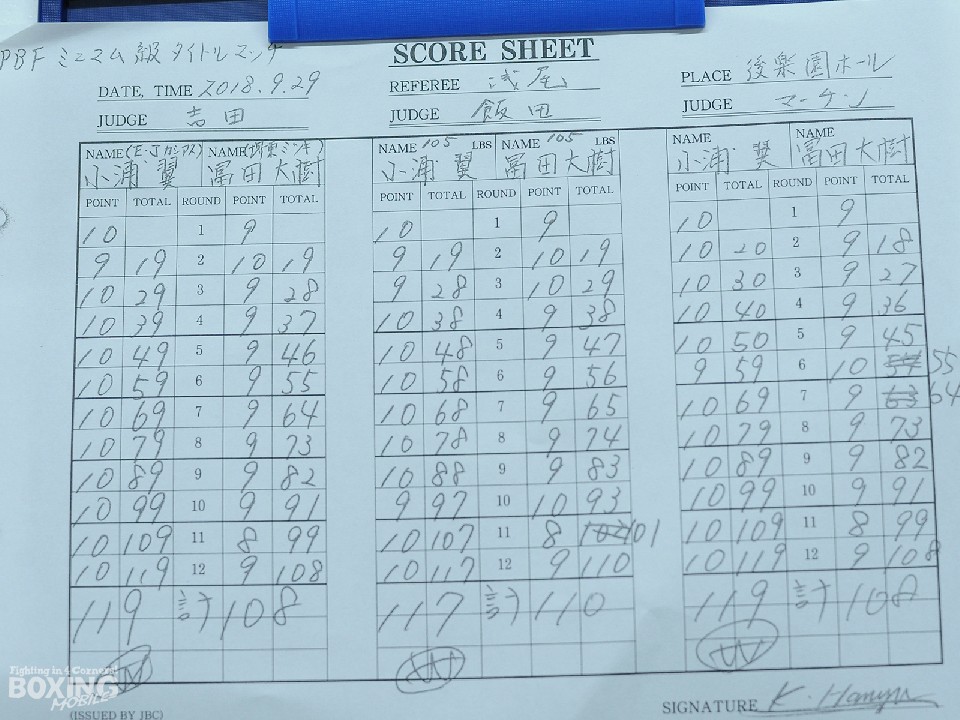 PBF ミニマム級タイトルマッチ
SCORE SHEET
DATE, TIME 2018.9.29
REFEREE 浅尾
PLACE 後楽園ホール
JUDGE 吉田
JUDGE 飯田
JUDGE マーチン
NAME NAME
小浦 翼 冨田大樹
POINT TOTAL ROUND POINT TOTAL
10 1 9
9 19 2 10 19
10 29 3 9 28
10 39 4 9 37
10 49 5 9 46
10 59 6 9 55
10 69 7 9 64
10 79 8 9 73
10 89 9 9 82
10 99 10 9 91
10 109 11 8 99
10 119 12 9 108
119 計 108
W
NAME 105 LBS NAME 105 LBS
小浦 翼 冨田大樹
POINT TOTAL ROUND POINT TOTAL
10 1 9
9 19 2 10 19
9 28 3 10 29
10 38 4 9 38
10 48 5 9 47
10 58 6 9 56
10 68 7 9 65
10 78 8 9 74
10 88 9 9 83
9 97 10 10 93
10 107 11 8 102 101
10 117 12 9 110
117 計 110
W
NAME NAME
小浦 翼 冨田大樹
POINT TOTAL ROUND POINT TOTAL
10 1 9
10 20 2 9 18
10 30 3 9 27
10 40 4 9 36
10 50 5 9 45
9 59 6 10 54 55
10 69 7 9 63 64
10 79 8 9 73
10 89 9 9 82
10 99 10 9 91
10 109 11 8 99
10 119 12 9 108
119 計 108
W
Fighting in 4 Corners!
BOXING
MOBILE
(ISSUED BY JBC)
SIGNATURE K. Hanyu